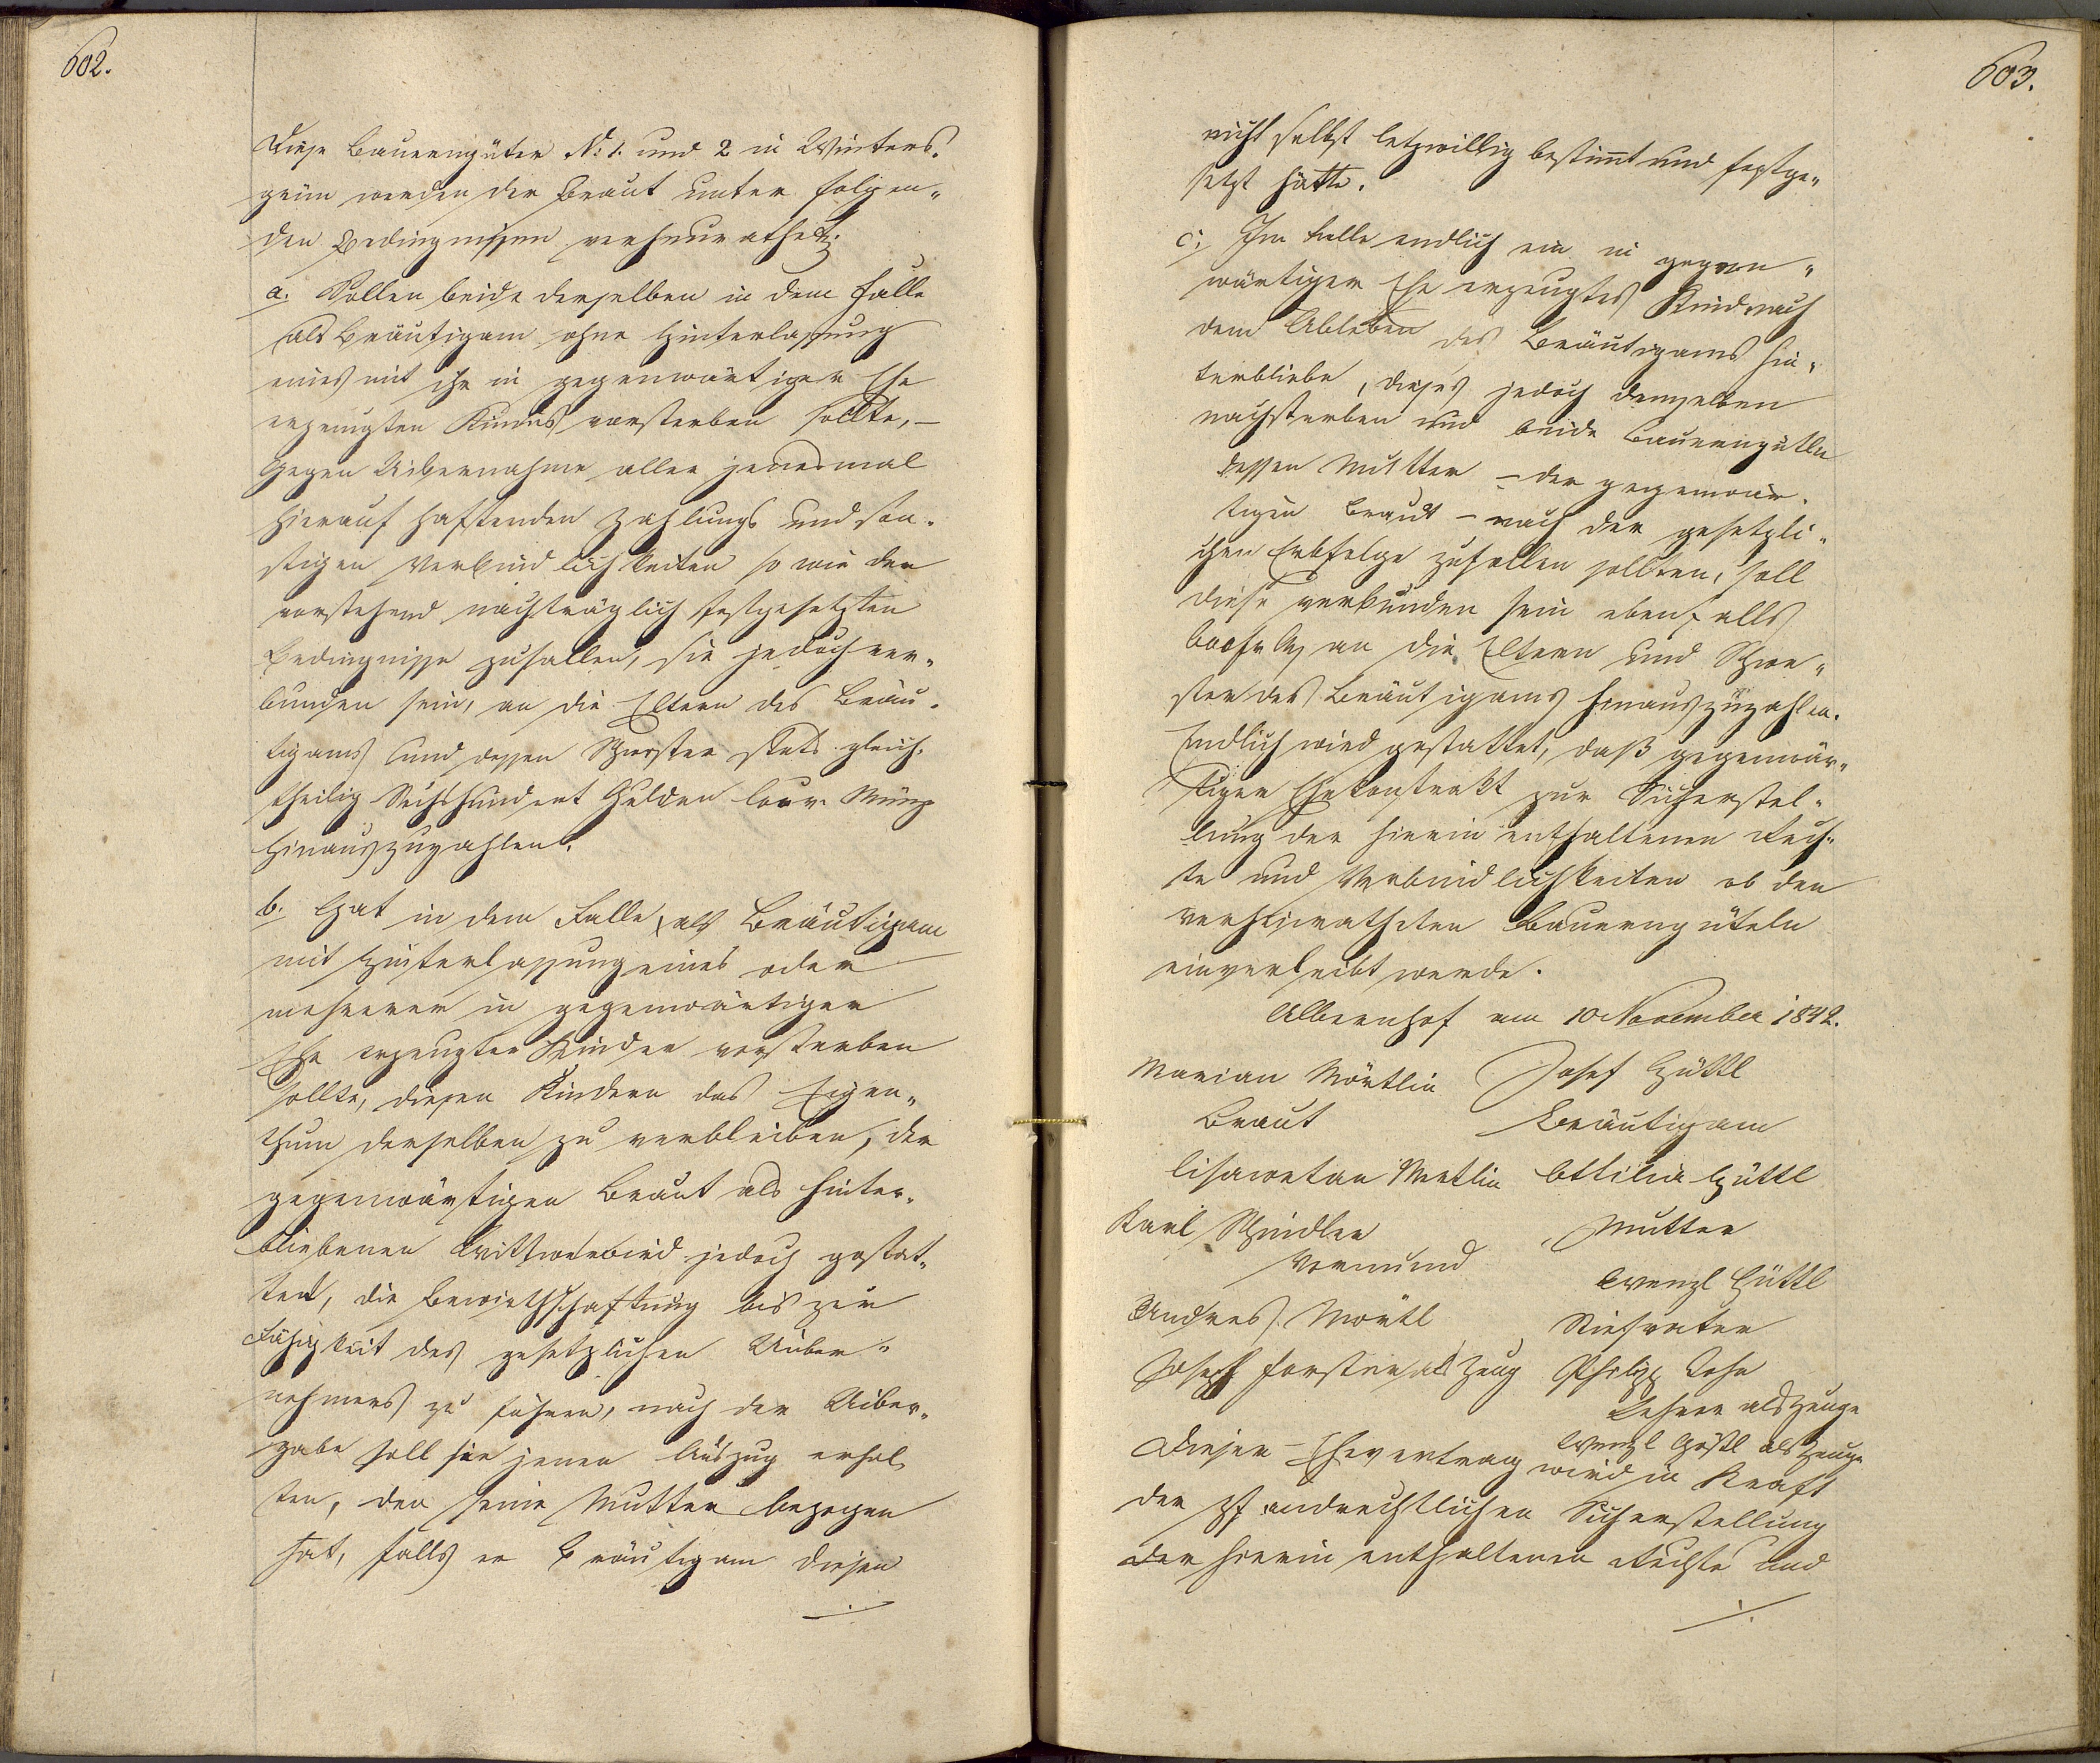 602.
Diese Bauerngüter N: 1. und 2 in Winters-
grün werden der Braut unter folgen-
den Bedingnissen verheurathet:
a. Sollen beide derselben in dem Falle
als Bräutigam ohne Hinterlassung
eines mit ihr in gegenwärtiger Ehe
erzeugten Kindes versterben sollte, –
gegen Uibernahme aller jedesmal
hierauf haftenden Zahlungs und son-
stigen Verbindlichkeiten so wie der
vorstehend nachträglich festgesetzten
Bedingnisse zufallen, sie jedoch ver-
bunden sein, an die Eltern des Bräu-
tigams und dessen Schwester stets gleich-
theilig Sechshundert Gulden Conv. Münz
hinauszuzahlen.
b. Hat in dem Falle, als Bräutigam
mit Hinterlassung eines oder
mehrerer in gegenwärtiger
Ehe erzeugter Kinder versterben
sollte, diesen Kindern das Eigen-
thum derselben zu verbleiben, der
gegenwärtigen Braut als hinter-
bliebenen Wittwe wird jedoch gestat-
tet, die Bewirthschaftung bis zur
Fähigkeit des gesetzlichen Uiber-
nehmers zu führen, nach der Uiber-
gabe soll sie jenen Auszug erhal-
ten, den seine Mutter bezogen
hat, falls er Bräutigam diesen
./.
603.
nicht selbst letzwillig bestimt und festge-
setzt hätte.
c. Im Falle endlich ein in gegen-
wärtiger Ehe erzeugtes Kind nach
dem Ableben des Bräutigams hin-
terbliebe, dieses jedoch demselben
nachsterben und beide Bauerngütln
dessen Mutter – der gegenwär-
tigen Braut – nach der gesetzli-
chen Erbfolge zufallen sollten, soll
diese verbunden sein ebenfalls
600 fr CM an die Eltern und Schwe-
ster des Bräutigams hinauszuzahlen.
Endlich wird gestattet, daß gegenwär-
tiger Ehekontrakt zur Sicherstel-
lung der hierin enthaltenen Rech-
te und Verbindlichkeiten ob den
verheiratheten Bauerngüteln
einverleibt werde.
Albernhof am 10 November 1842.
Marian Mörtlin Josef Hüttl
Braut Bräutigam
Lisawetan Mertlin Ottilia Hüttl
Karl Schindler Mutter
Vormund Wenzl Hüttl
Andreas Mörtl Stiefvater
Joseph Forster als Zeug Philipp
Lehrer als Zeuge
Wenzl Hößl als Zeuge
Dieser Ehevertrag wird in Kraft
der pfandrechtlichen Sicherstellung
der hierin enthaltenen Rechte und
./.